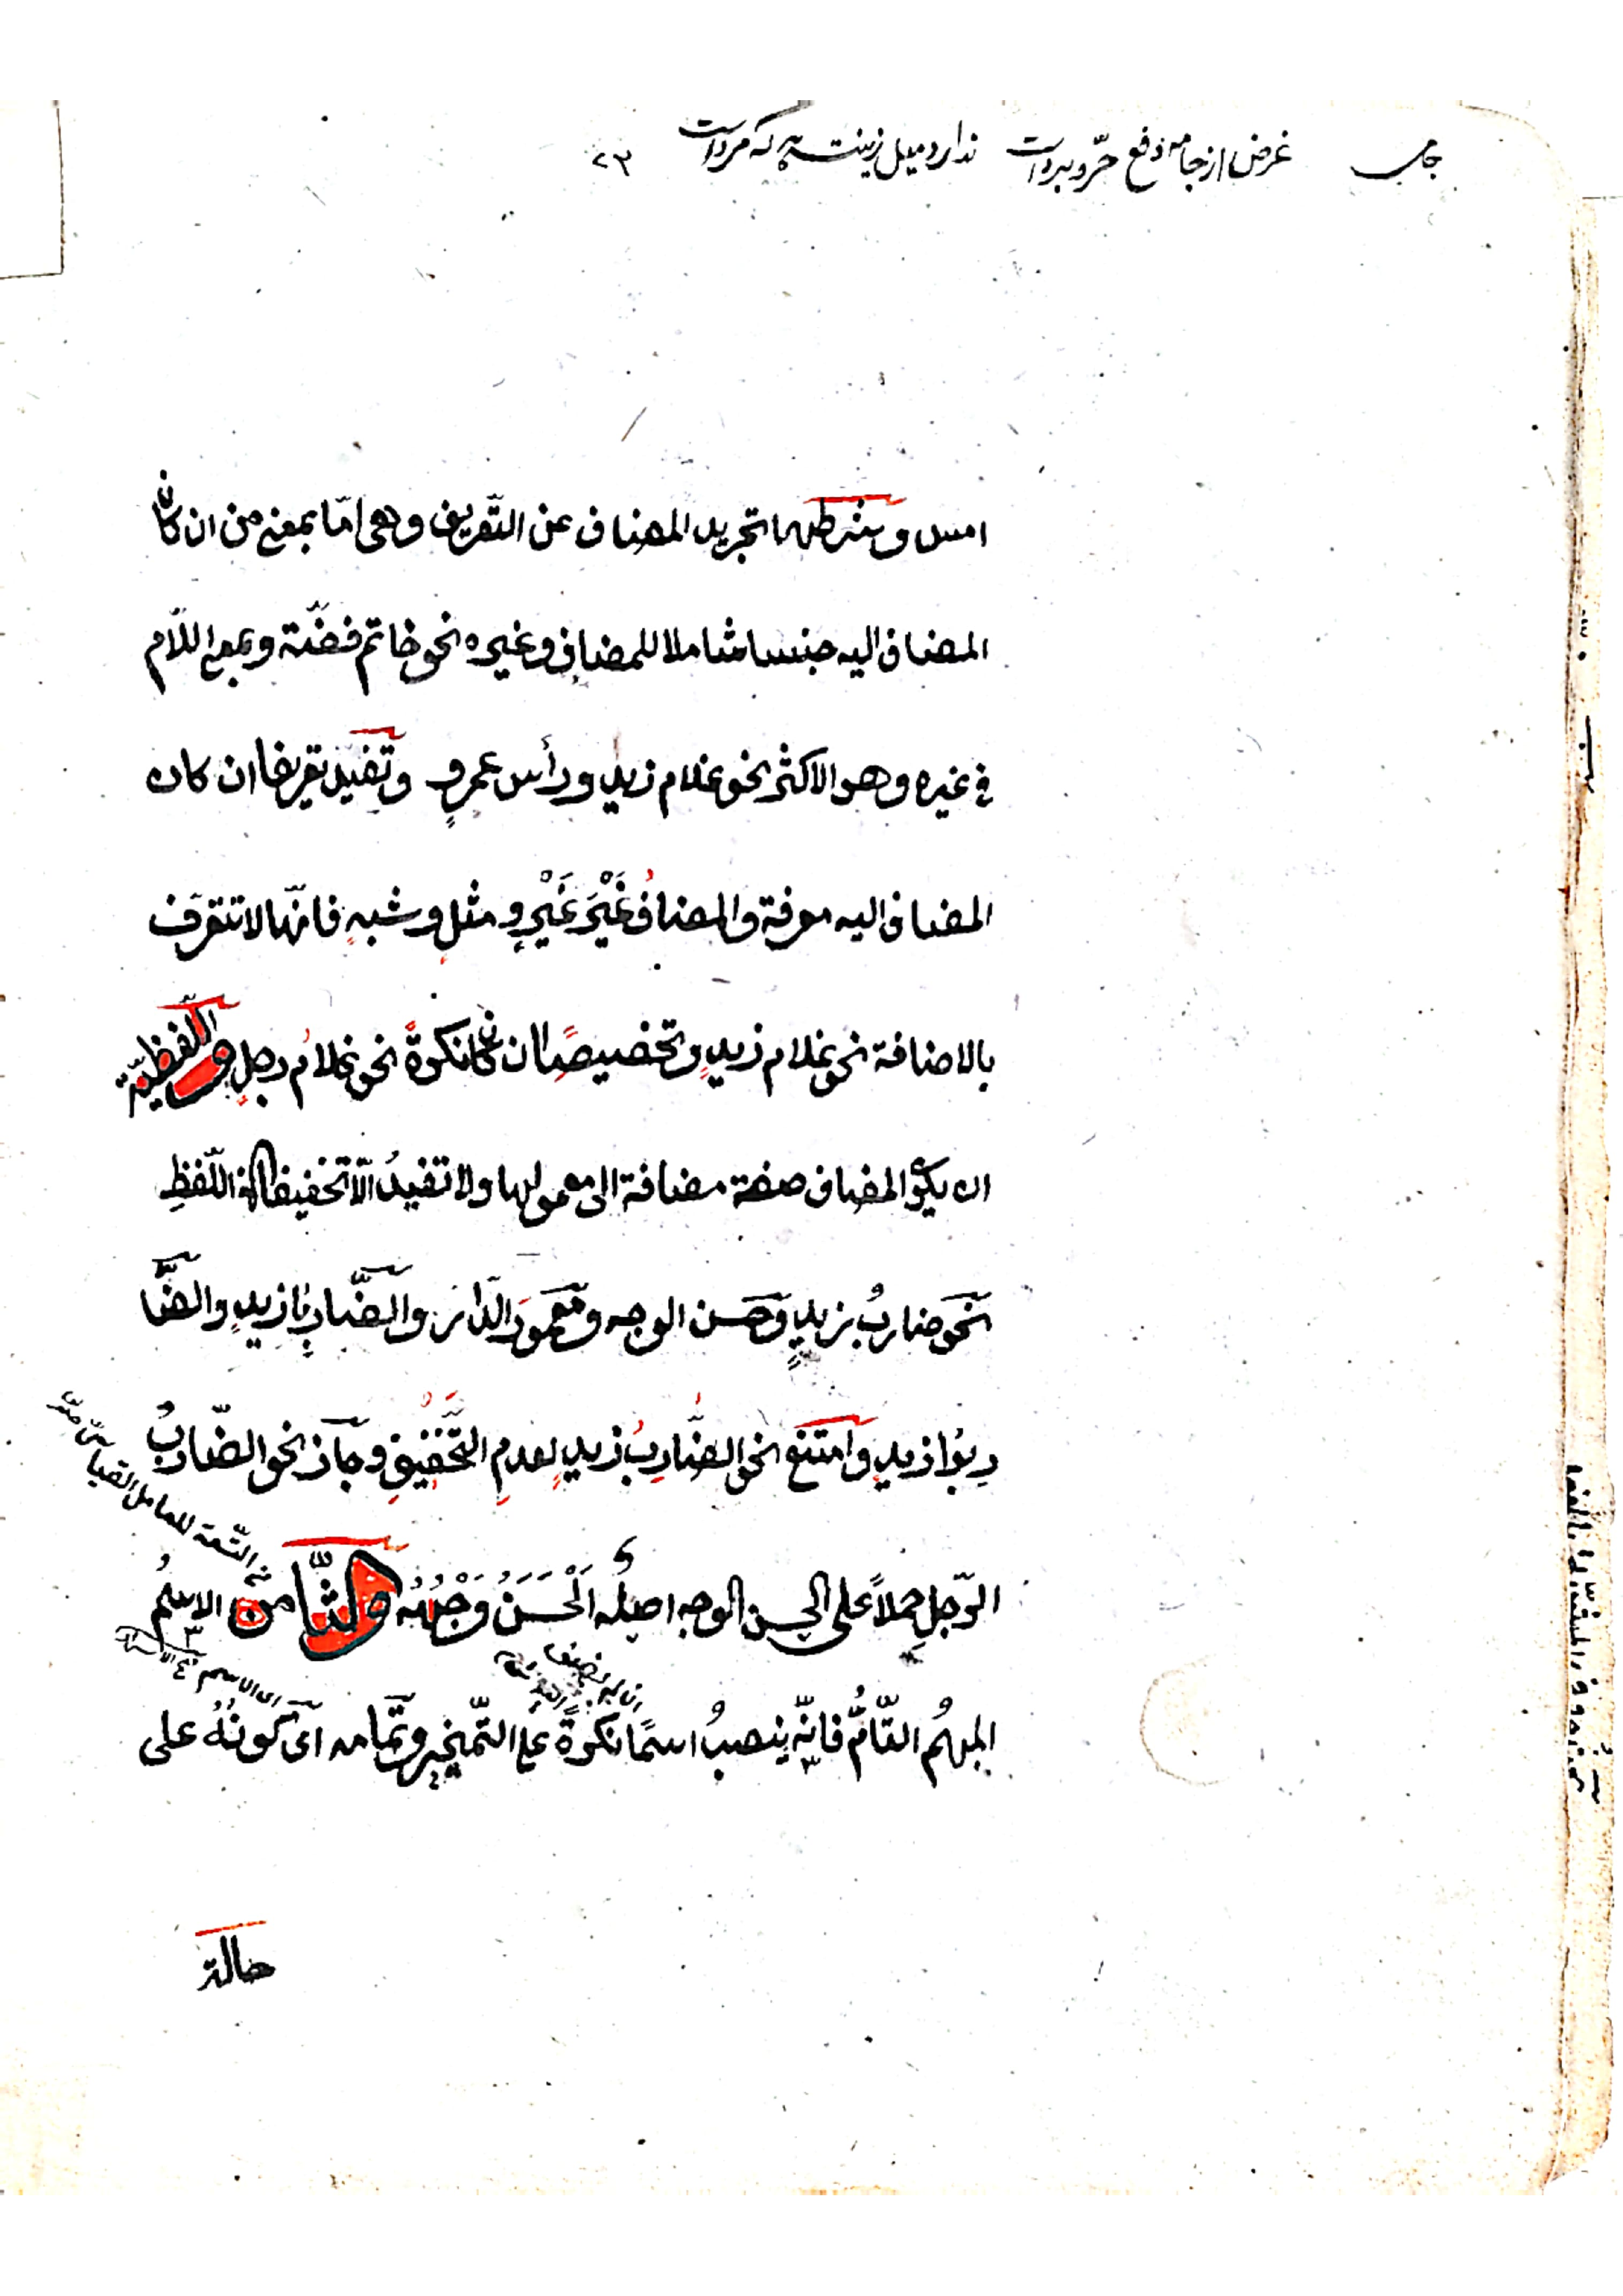 غرض از جامه دفع حرّ و برد است ندارد میل زینت هر که مرد است ۲۳
امس وشرطها تجريد المضاف عن التّعريف وهى امّا بمعنى من ان كان
المضاف اليه جنسا شاملا للمضاف وغيره نحو خاتم فضّة وبمعنى اللّام
فى غيره وهو الاكثر نحو غلام زيد ورأس عمرٍو وتفيد تعريفا ان كان
المضاف اليه معرفة والمضافُ غَيْرَ غَيْرٍ و مثلٍ و شبهٍ فانّها لا تتعرّف
بالاضافة نحو غلام زيدٍ وتخصيصًا ان كان نكرةً نحو غلامُ رجلٍ واللّفظيّة
ان يكون المضاف صفة مضافة الى معمولها ولا تفيدُ الّا تخفيفا فى اللّفظِ
نحو ضاربُ زيدٍ وحسن الوجه ومعمور الدّار والضّاربا زيدٍ والضّا
رِبُوا زيدٍ وامتنع نحو الضّارِبُ زيدٍ لعدمِ التَّخفيفِ وجاز نحو الضّاربُ
الرّجلِ حملاً على الحسن الوجه اصلُه اَلْحَسَنُ وَجْهُهُ والثّامن الاسمُ
المبهمُ التّامُّ فانّه ينصبُ اسمًا نكرةً على التّمييز وتمامه اى كونُهُ على
حالة